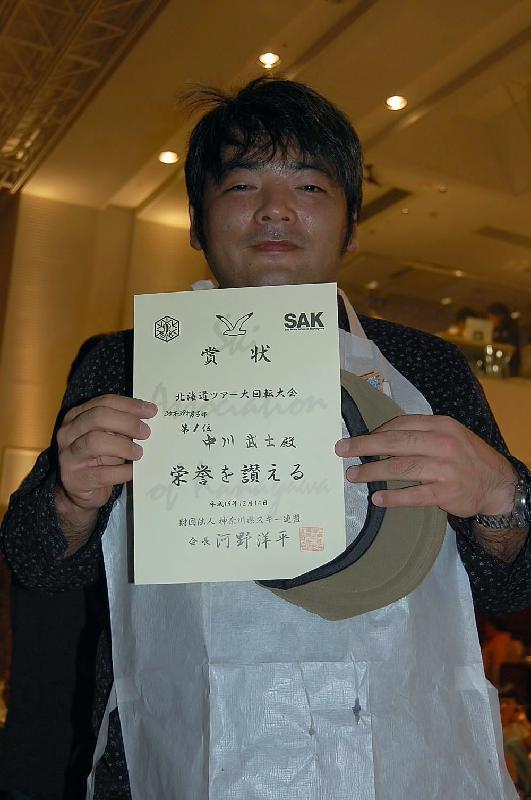 SAK
賞状
北海道ツアー大回転大会
第1位
中川武士殿
栄誉を讃える
平成15年12月13日
財団法人 神奈川県スキー連盟
会長 河野洋平
Ski
Association
of Kanagawa